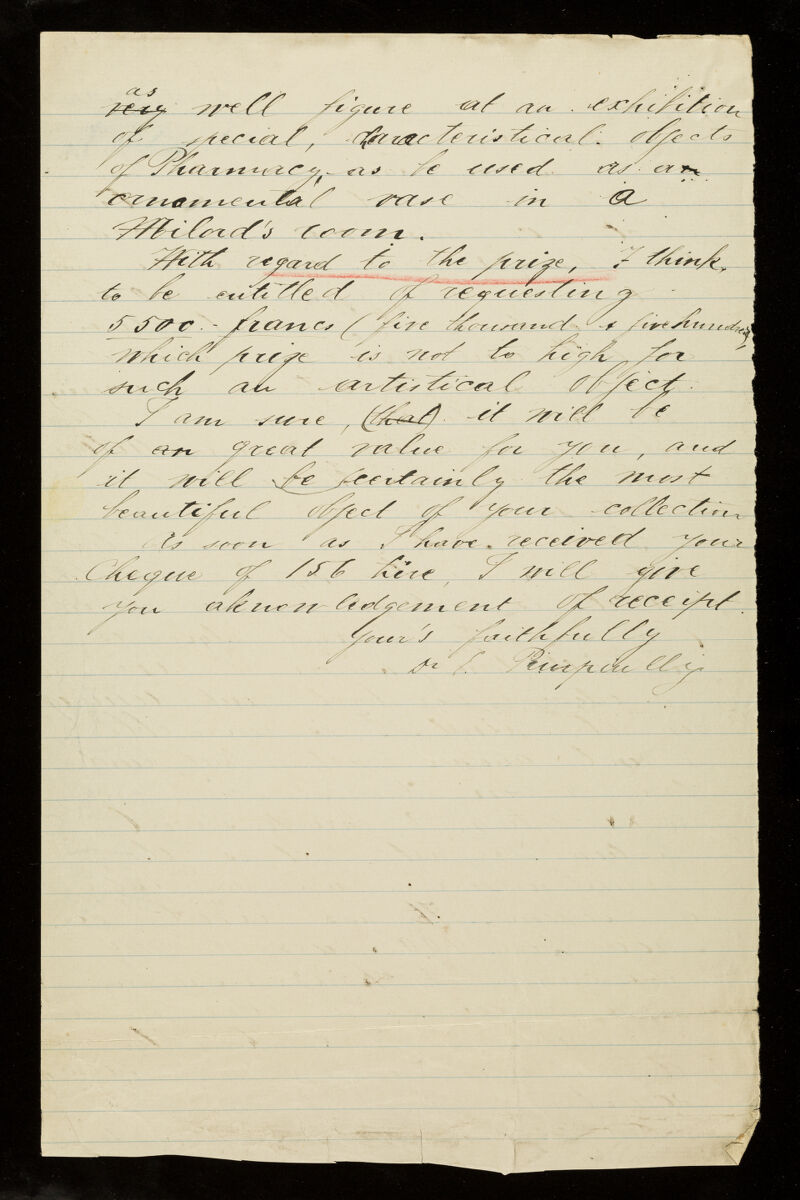 as
very well figure at an exhibition
of special, characteristical objects
of Pharmacy, as be used as an
ornamental vase in a
Milord's room.
With regard to the prize, I think
to be entitled of requesting
5500.- francs (five thousand & five hundred)
which prize is not to high for
such an artistical object.
I am sure, (that) it will be
of an great value for you, and
it will be certainly the most
beautiful object of your collection
As soon as I have received your
Cheque of 156 lire, I will give
you aknowledgement of receipt.
Your's faithfully
Dr